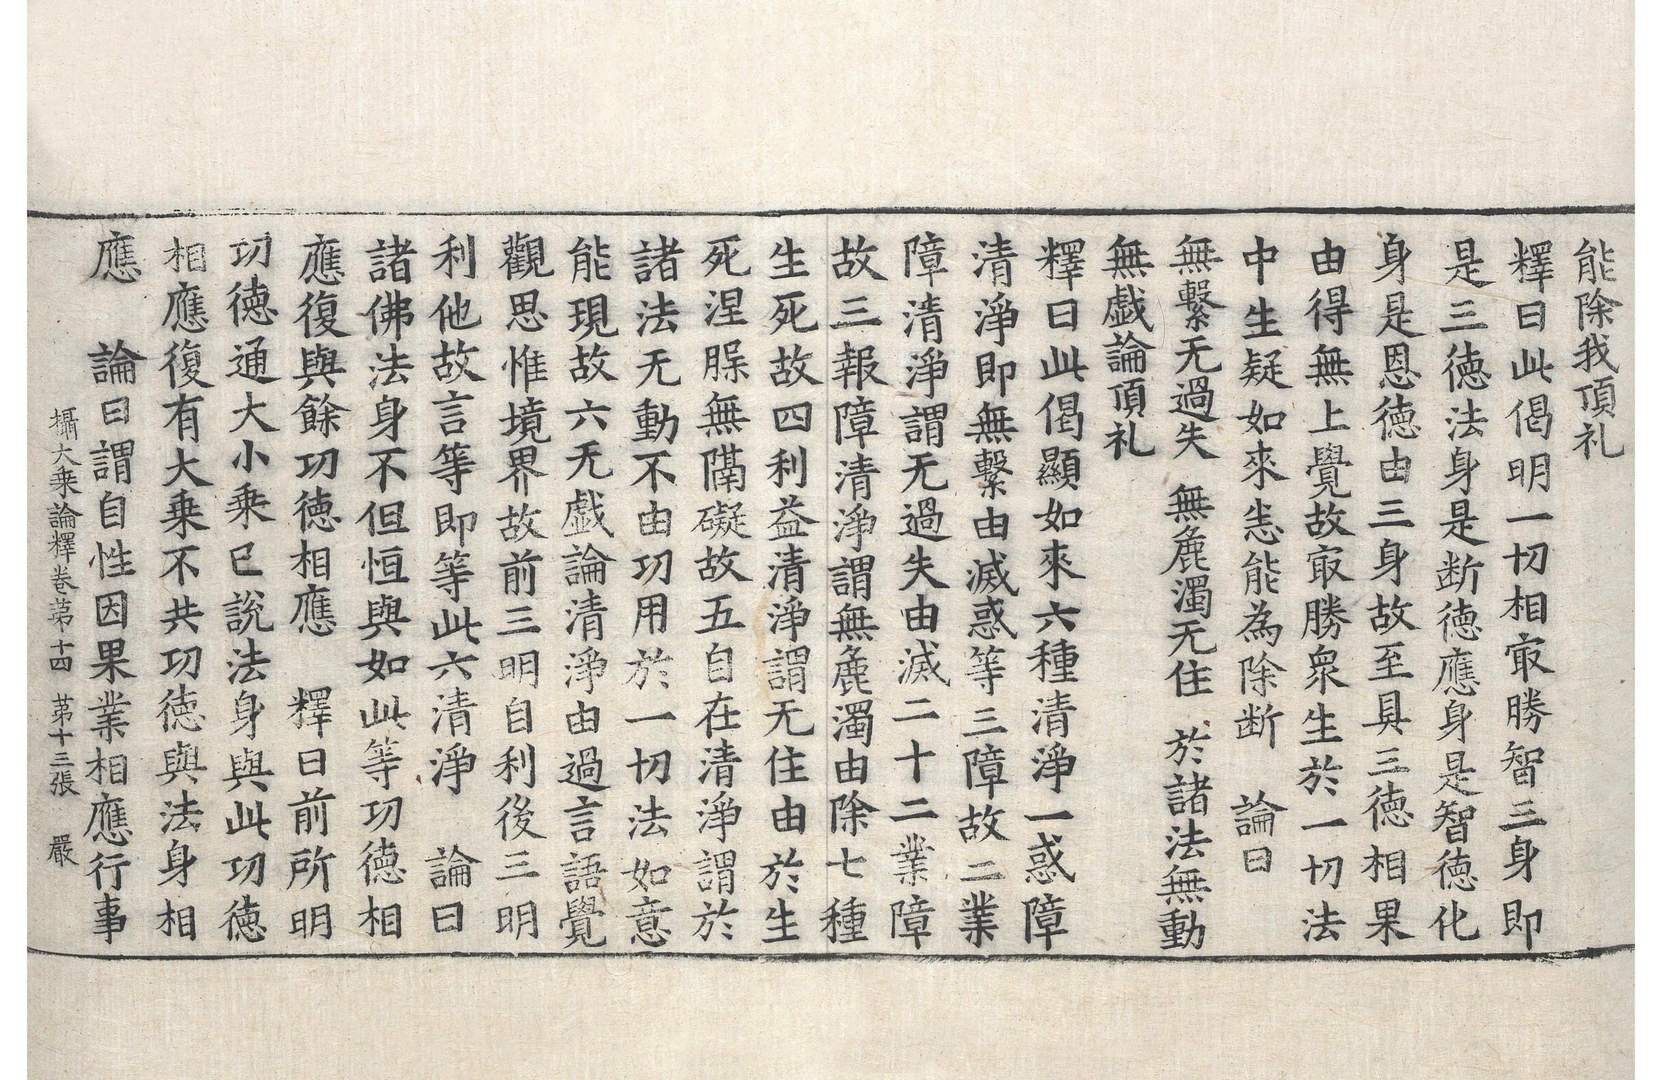 能除我頂礼
釋曰此偈明一切相㝡勝智三身即
是三德法身是断德應身是智德化
身是恩德由三身故至具三德相果
由得無上覺故㝡勝衆生於一切法
中生疑如來恙能為除断　論曰
無繫无過失　無麁濁无住　於諸法無動
無戯論頂礼
釋曰此偈顯如來六種清淨一惑障
清淨即無繫由滅惑等三障故二業
障清淨謂无過失由滅二十二業障
故三報障清淨謂無麁濁由除七種
生死故四利益清淨謂无住由於生
死涅脲無隔礙故五自在清淨謂於
諸法无動不由功用於一切法如意
能現故六无戯論清淨由過言語覺
觀思惟境界故前三明自利後三明
利他故言等即等此六清淨　論曰
諸佛法身不但恒與如此等功德相
應復與餘功德相應　釋曰前所明
功德通大小乗已說法身與此功德
相應復有大乗不共功德與法身相
應　論曰謂自性因果業相應行事
攝大乗論釋卷苐十四　苐十三張　嚴